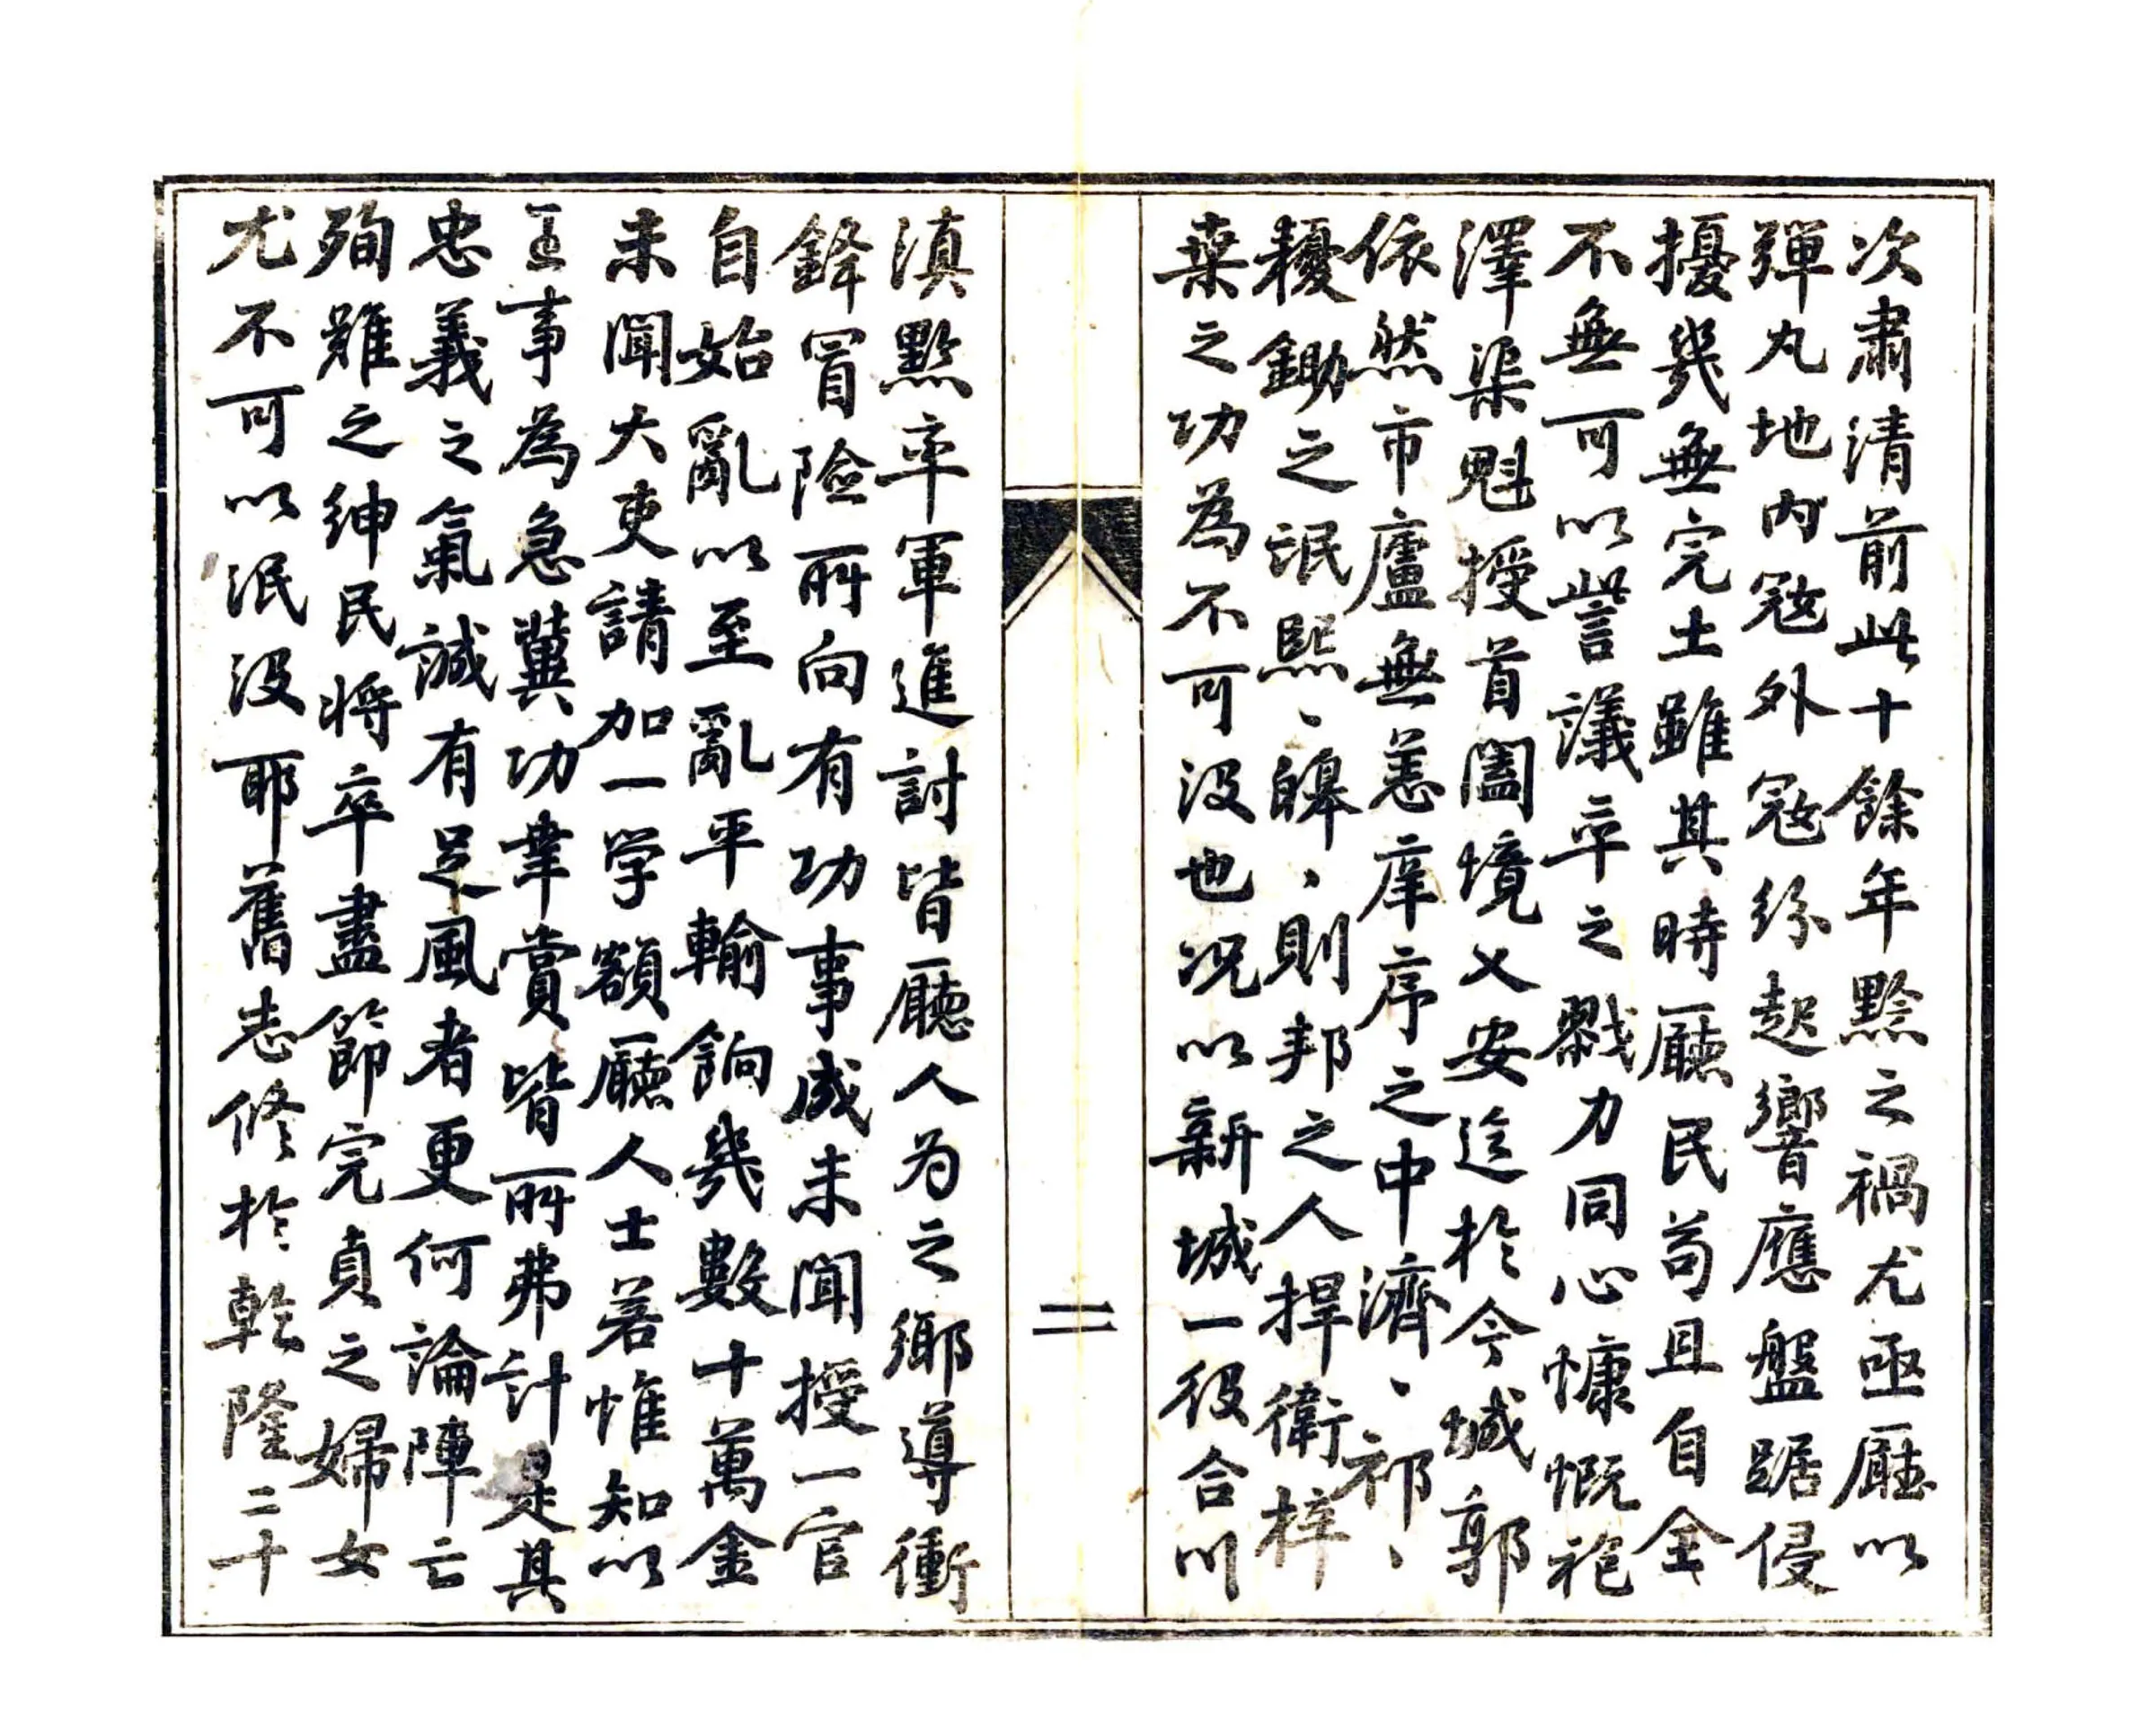 次肅清前此十餘年黔之禍尤亟廳以
彈丸地內寇外寇紛起響應盤踞侵
擾幾無完土雖其時廳民苟且自全
不無可以訾議卒之戮力同心慷慨袍
澤渠魁授首闔境乂安迄於今城郭
依然市廬無恙庠序之中濟、祁、
耰鋤之氓熙、皞、則邦之人捍衛梓
桒之功為不可沒也况以新城一役合川
二
滇黔率軍進討皆廳人为之鄉導衝
鋒冒險所向有功事成未聞授一官
自始亂以至亂平輸餉幾數十萬金
未聞大吏請加一学額廳人士若惟知以
王事為急冀功幸賞皆所弗計是其
忠義之氣誠有足風者更何論陣亡
殉難之紳民将卒盡節完貞之婦女
尤不可以泯沒耶舊志修於乾隆二十